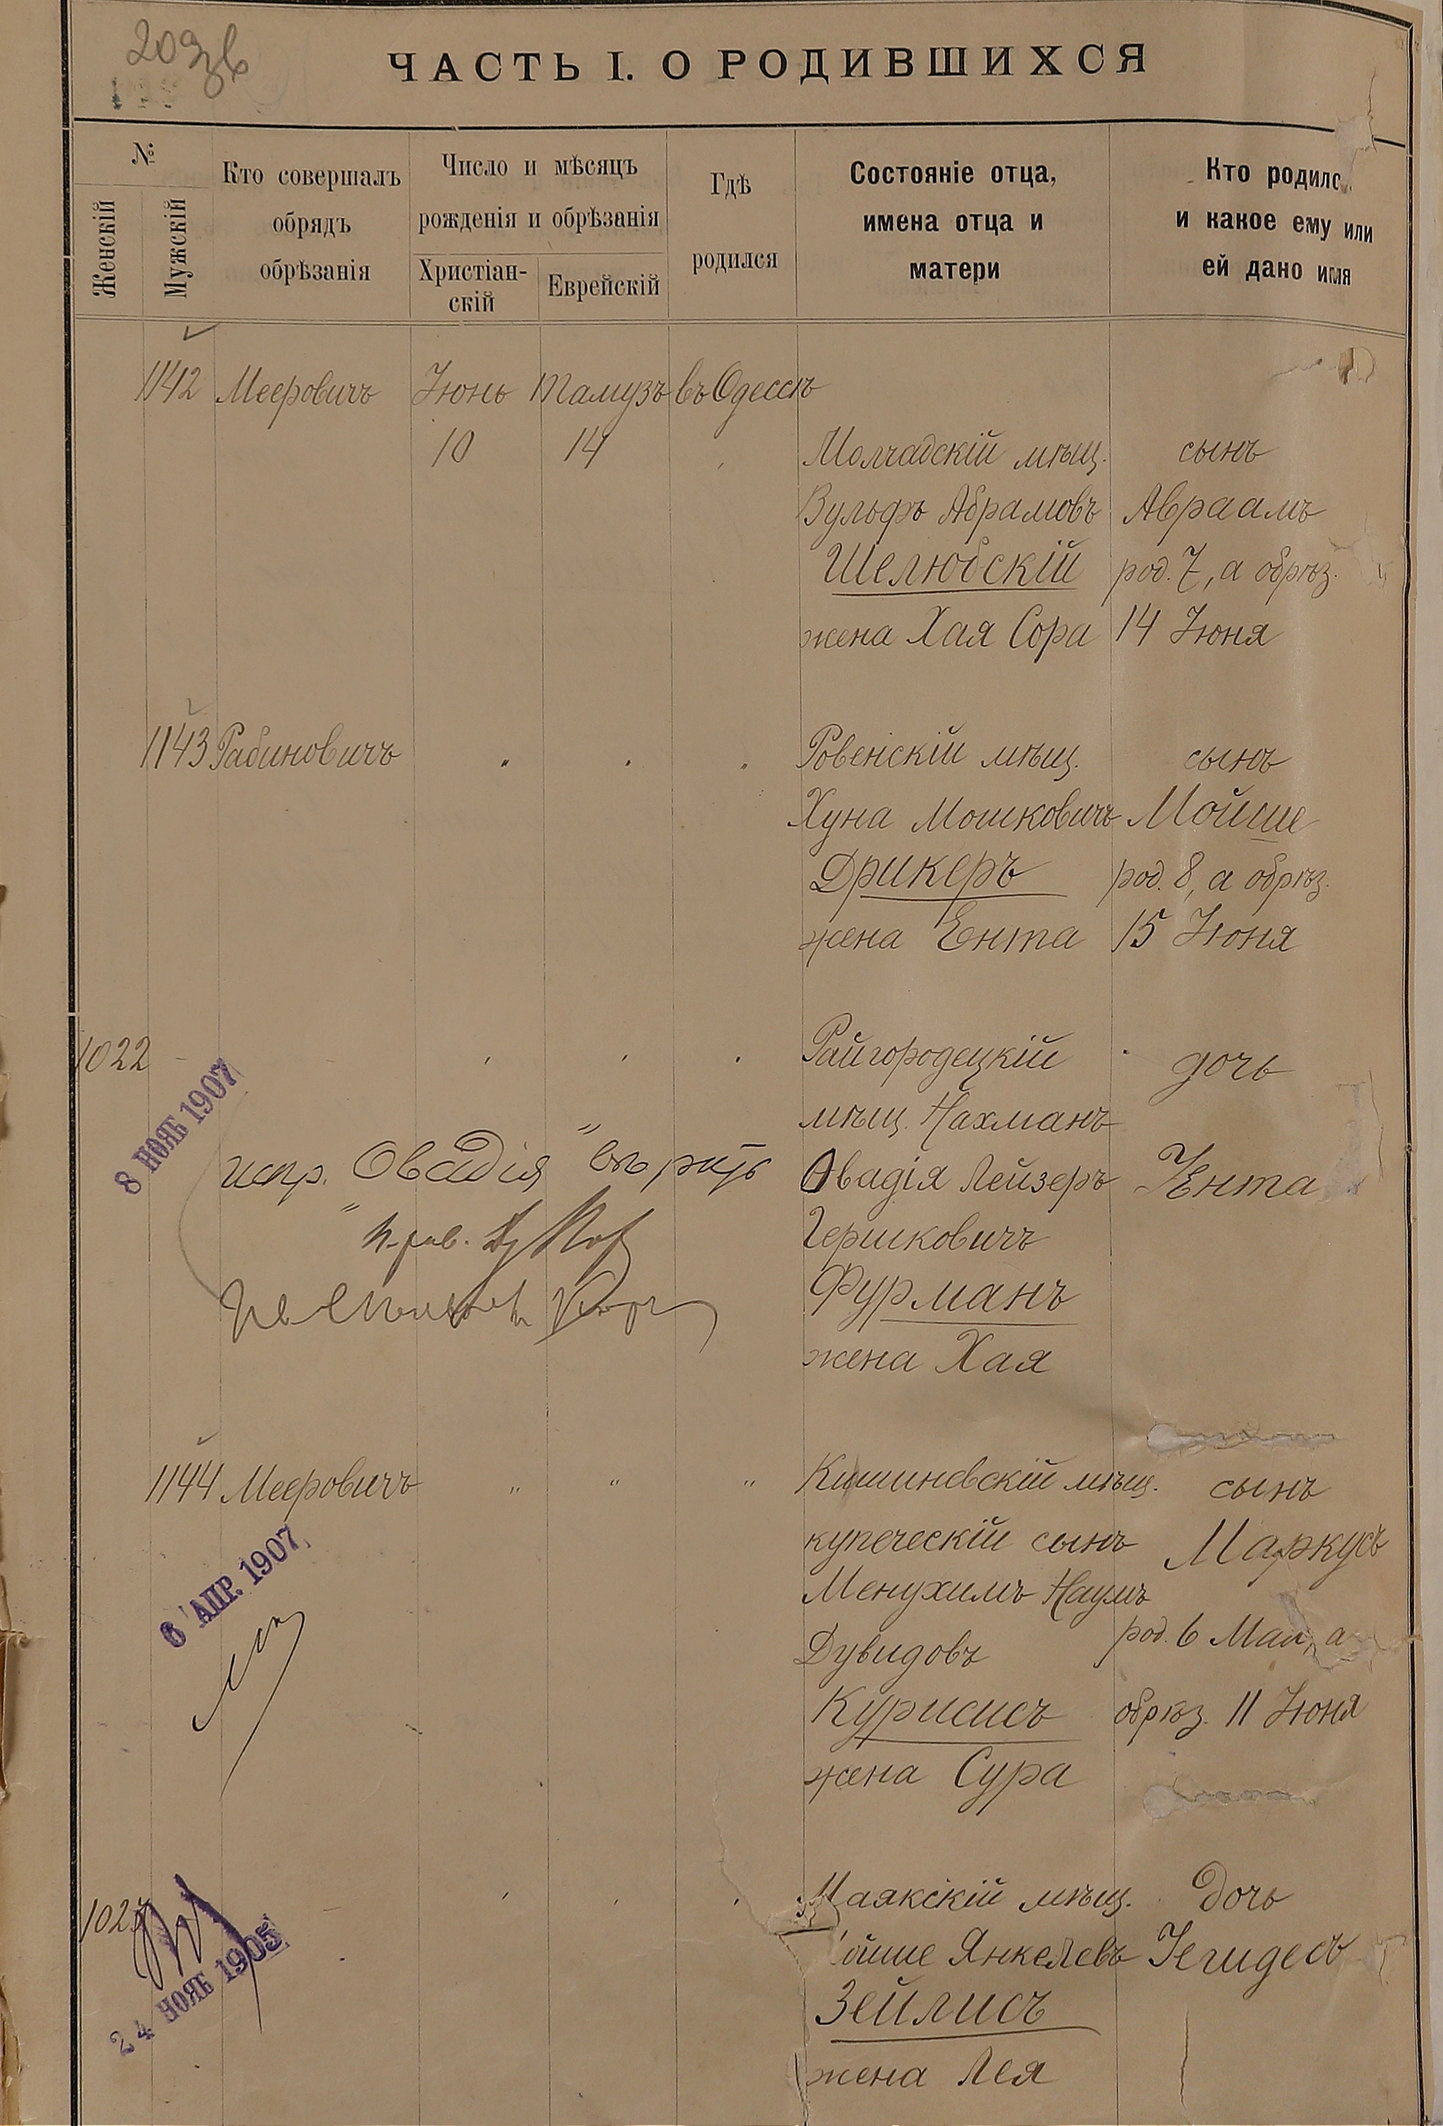 203 зв
ЧАСТЬ I. О РОДИВШИХСЯ
№
Женскій
Мужскій
Кто совершалъ
обрядъ
обрѣзанія
Число и мѣсяцъ
рожденія и обрѣзанія
Христіан-
скій
Еврейскій
Гдѣ
родился
Состояніе отца,
имена отца и
матери
Кто родилс
и какое ему или
ей дано имя
1142 Мееровичъ Іюнь Тамузъ въ Одессѣ
10 14 Молчадскій мѣщ. сынъ
Вульфъ Абрамовъ Авраамъ
Шелюбскій род. 7, а обрѣз.
жена Хая Сора 14 Іюня
1143 Рабиновичъ " " " Ровенскій мѣщ. сынъ
Хуна Мошковичъ Мойше
Дрикеръ род. 8, а обрѣз.
жена Ента 15 Іюня
1022 Райгородецкій дочь
8 НОЯБ 1907
мѣщ. Нахманъ
испр. "Овадія" Овадія Лейзеръ Іента
Гершковичъ
Фурманъ
жена Хая
1144 Мееровичъ " " " Кишиневскій мѣщ. сынъ
6 АПР. 1907
купеческій сынъ Маркусъ
Менухимъ Наумъ
Дувидовъ род. 6 Мая, а
Курисисъ обрѣз. 11 Іюня
жена Сура
Маякскій мѣщ. дочь
24 НОЯБ 1905
Янкелевъ Іегидесъ
Зейлисъ
жена Лея